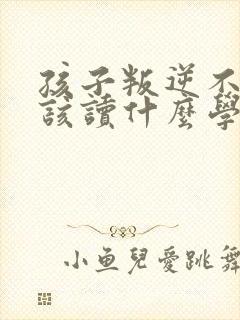 孩子叛逆不
該讀什麼學
小鱼兒愛跳舞